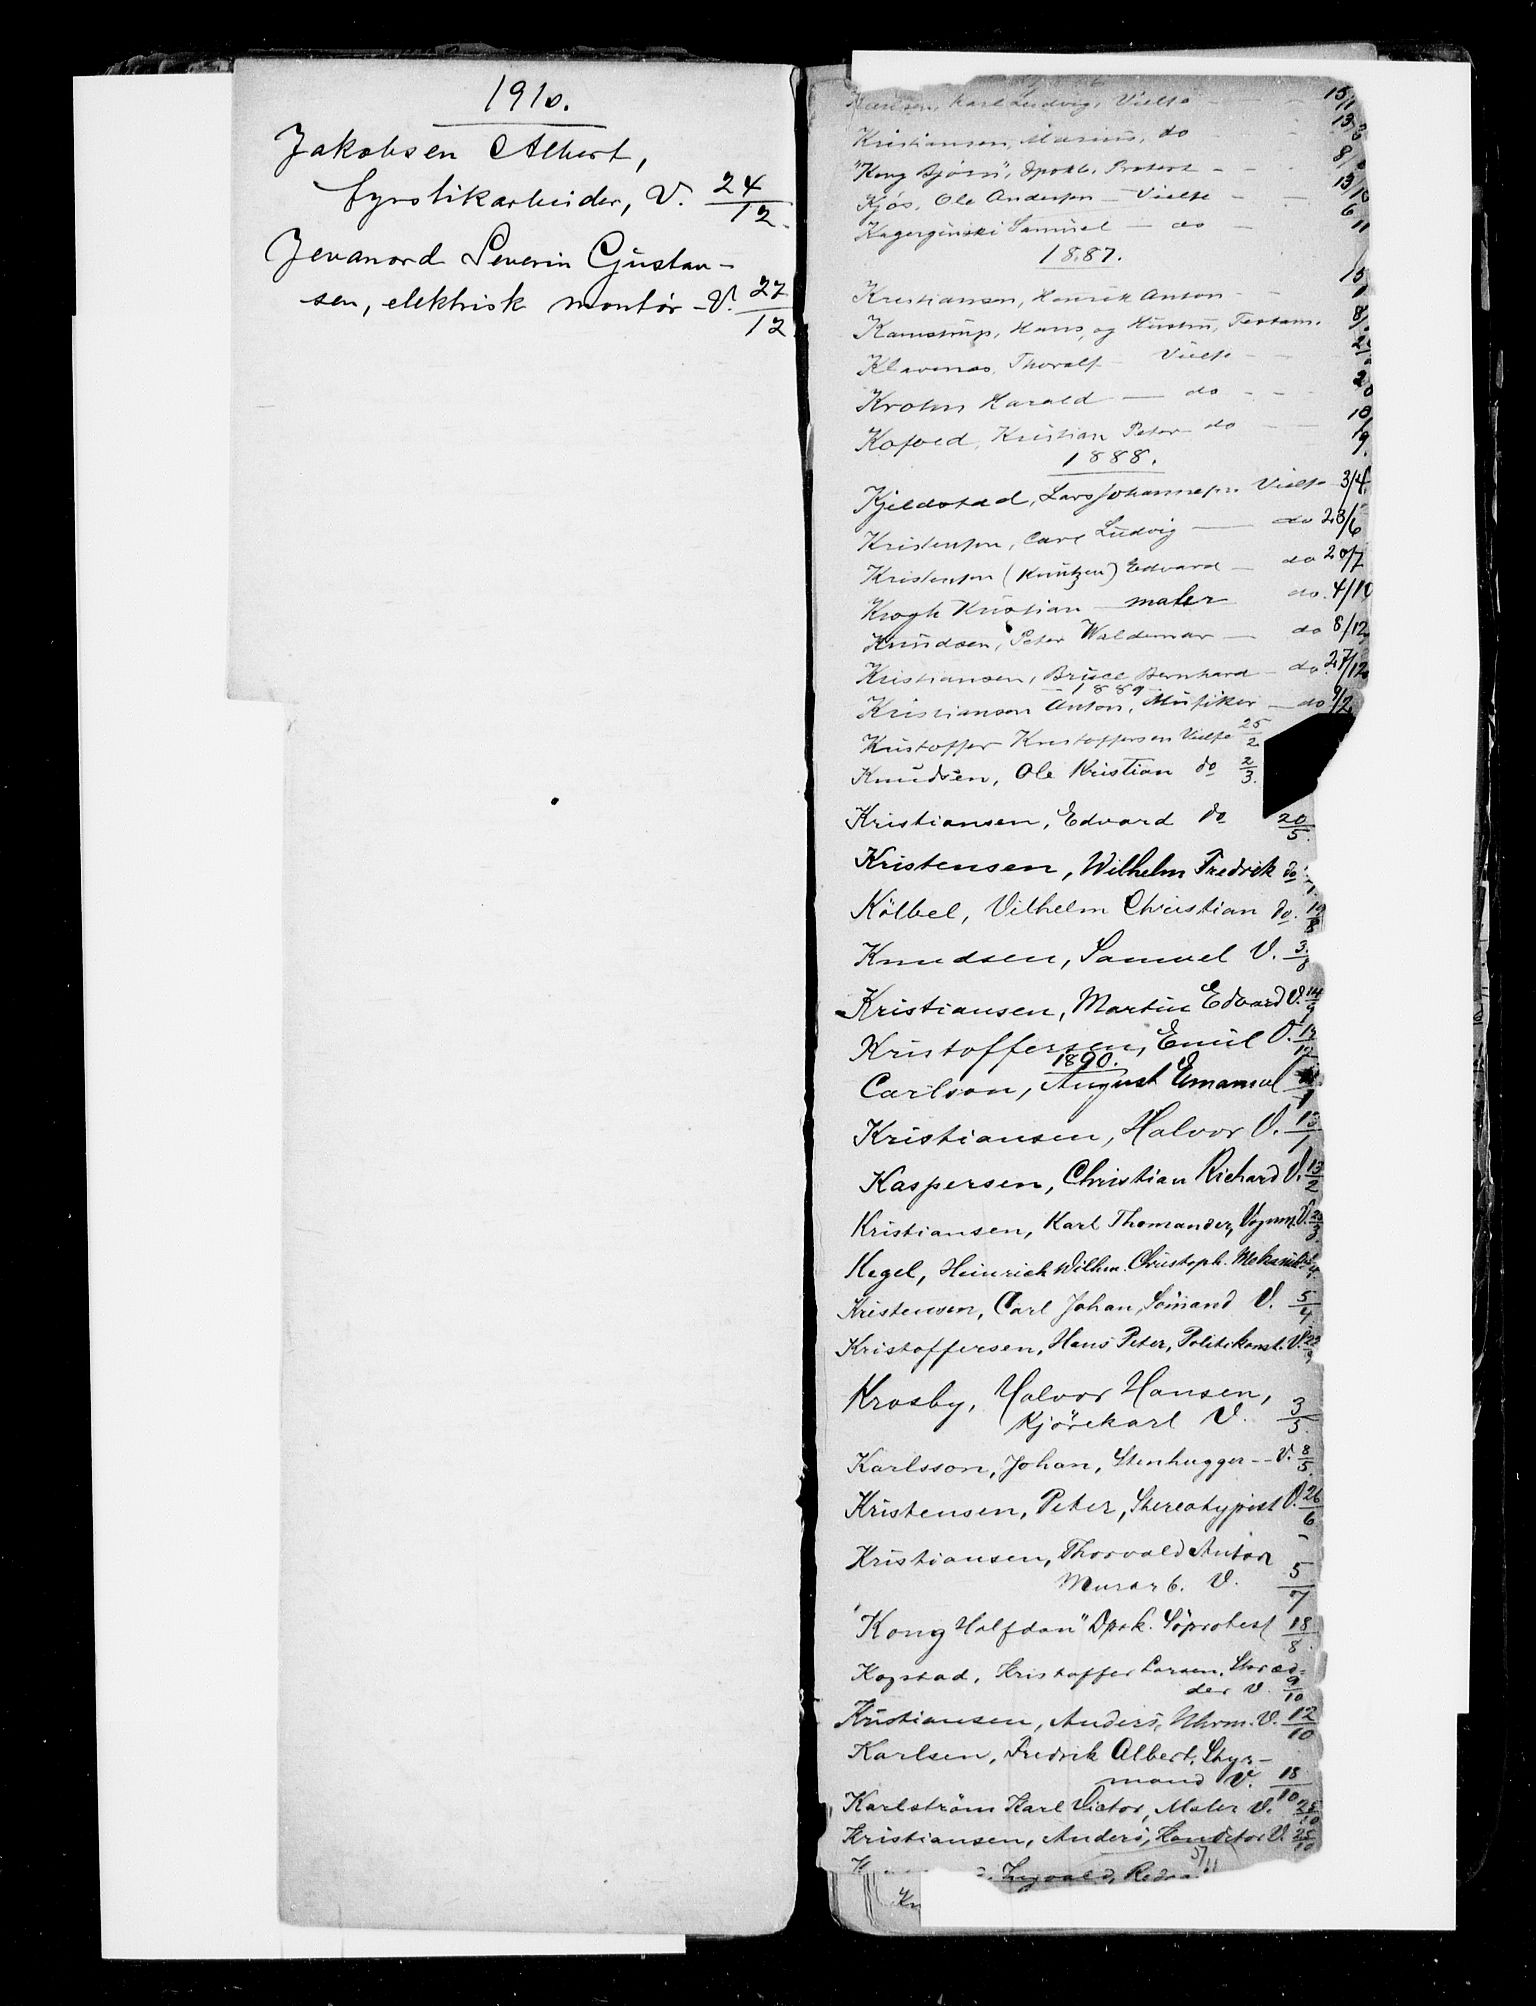 1910.
Jakobsen Albert,
fyrstikarbeider, V. 24/12.
Jevanord Severin Gustav-
sen, elektrisk montör - V. 27/12
Karl Ludvig, Vielse
Kristiansen, Marius, do
"Kong Bjørn", Protest
Kjøs, Ole Andersen - Vielse
Kagerginski Samuel - do 6/11
1887.
Kristiansen, Henrik Anton
Kamstrup, Hans, og Hustru, Testam.
Klavenes, Thoralf - Vielse
Krohn Harald - do
Kofoed, Kristian Peter do 10/9.
1888.
Kjeldstad, Lars Johannesen Vielse 3/4.
Kristensen, Carl Ludvig - do 23/6
Kristensen (Knutzen) Edvard - do 20/7
Krogh Kristian - maler do. 4/10
Knudsen, Peter Waldemar - do 8/12
Kristiansen, Bruce Bernhard - do. 27/12
1889
Kristiansen Anton, Musiker - do 9/2
Kristoffer Kristoffersen Vielse 25/2
Knudsen, Ole Kristian do 2/3.
Kristiansen, Edvard do 20/5.
Kristensen, Wilhelm Fredrik do
Kölbel, Vilhelm Christian do. 19/8
Knudsen, Samuel V. 3/8
Kristiansen, Martin Edvard V. 14/9
Kristoffersen, Emil V.
1890.
Carlson, August Emanuel
Kristiansen, Halvor V. 13/1
Kaspersen, Christian Richard V. 13/2
Kristiansen, Karl Thomander, Vognm. V.
Kegel, Heinrich Wilhm. Christoph. Mekanik.
Kristensen, Carl Johan, Sömand V. 5/4
Kristoffersen, Hans Peter, Politikonst. V.
Krosby, Halvor Hansen,
Kjörekarl V. 3/5.
Karlsson, Johan, Stenhugger -- V. 8/5.
Kristensen, Peter, Stereotypist V. 26/6
Kristiansen, Thorvald Anton
Murarb. V. 5/7
"Kong Halfdan" Dpsk. Söprotest 18/8.
Kopstad, Kristoffer Larsen, Skræd-
der V. 9/10
Kristiansen, Anders, Uhrm. V. 12/10
Karlsen, Fredrik Albert, Styr-
mand V. 18/10
Karlström Karl Victor, Maler V. 25/10
Kristiansen, Anders, Konditor V. 25/10
Ingvald,